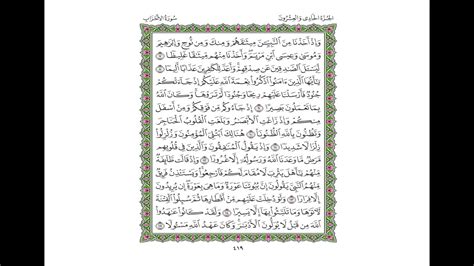 الجزء الحادى والعشرون سورة الأحزاب
وَإِذْ أَخَذْنَا مِنَ ٱلنَّبِيِّـۧنَ مِيثَـٰقَهُمْ وَمِنكَ وَمِن نُّوحٍ وَإِبْرَٰهِيمَ
وَمُوسَىٰ وَعِيسَى ٱبْنِ مَرْيَمَ ۖ وَأَخَذْنَا مِنْهُم مِّيثَـٰقًا غَلِيظًا ٧
لِّيَسْـَٔلَ ٱلصَّـٰدِقِينَ عَن صِدْقِهِمْ ۚ وَأَعَدَّ لِلْكَـٰفِرِينَ عَذَابًا أَلِيمًا ٨
يَـٰٓأَيُّهَا ٱلَّذِينَ ءَامَنُوا۟ ٱذْكُرُوا۟ نِعْمَةَ ٱللَّهِ عَلَيْكُمْ إِذْ جَآءَتْكُمْ
جُنُودٌ فَأَرْسَلْنَا عَلَيْهِمْ رِيحًا وَجُنُودًا لَّمْ تَرَوْهَا ۚ وَكَانَ ٱللَّهُ
بِمَا تَعْمَلُونَ بَصِيرًا ٩ إِذْ جَآءُوكُم مِّن فَوْقِكُمْ وَمِنْ أَسْفَلَ
مِنكُمْ وَإِذْ زَاغَتِ ٱلْأَبْصَـٰرُ وَبَلَغَتِ ٱلْقُلُوبُ ٱلْحَنَاجِرَ
وَتَظُنُّونَ بِٱللَّهِ ٱلظُّنُونَا۠ ١٠ هُنَالِكَ ٱبْتُلِىَ ٱلْمُؤْمِنُونَ وَزُلْزِلُوا۟
زِلْزَالًا شَدِيدًا ١١ وَإِذْ يَقُولُ ٱلْمُنَـٰفِقُونَ وَٱلَّذِينَ فِى قُلُوبِهِم
مَّرَضٌ مَّا وَعَدَنَا ٱللَّهُ وَرَسُولُهُۥٓ إِلَّا غُرُورًا ١٢ وَإِذْ قَالَت طَّآئِفَةٌ
مِّنْهُمْ يَـٰٓأَهْلَ يَثْرِبَ لَا مُقَامَ لَكُمْ فَٱرْجِعُوا۟ ۚ وَيَسْتَـْٔذِنُ فَرِيقٌ
مِّنْهُمُ ٱلنَّبِىَّ يَقُولُونَ إِنَّ بُيُوتَنَا عَوْرَةٌ وَمَا هِىَ بِعَوْرَةٍ ۖ إِن يُرِيدُونَ
إِلَّا فِرَارًا ١٣ وَلَوْ دُخِلَتْ عَلَيْهِم مِّنْ أَقْطَارِهَا ثُمَّ سُئِلُوا۟ ٱلْفِتْنَةَ
لَـَٔاتَوْهَا وَمَا تَلَبَّثُوا۟ بِهَآ إِلَّا يَسِيرًا ١٤ وَلَقَدْ كَانُوا۟ عَـٰهَدُوا۟
ٱللَّهَ مِن قَبْلُ لَا يُوَلُّونَ ٱلْأَدْبَـٰرَ ۚ وَكَانَ عَهْدُ ٱللَّهِ مَسْـُٔولًا ١٥
٤١٩